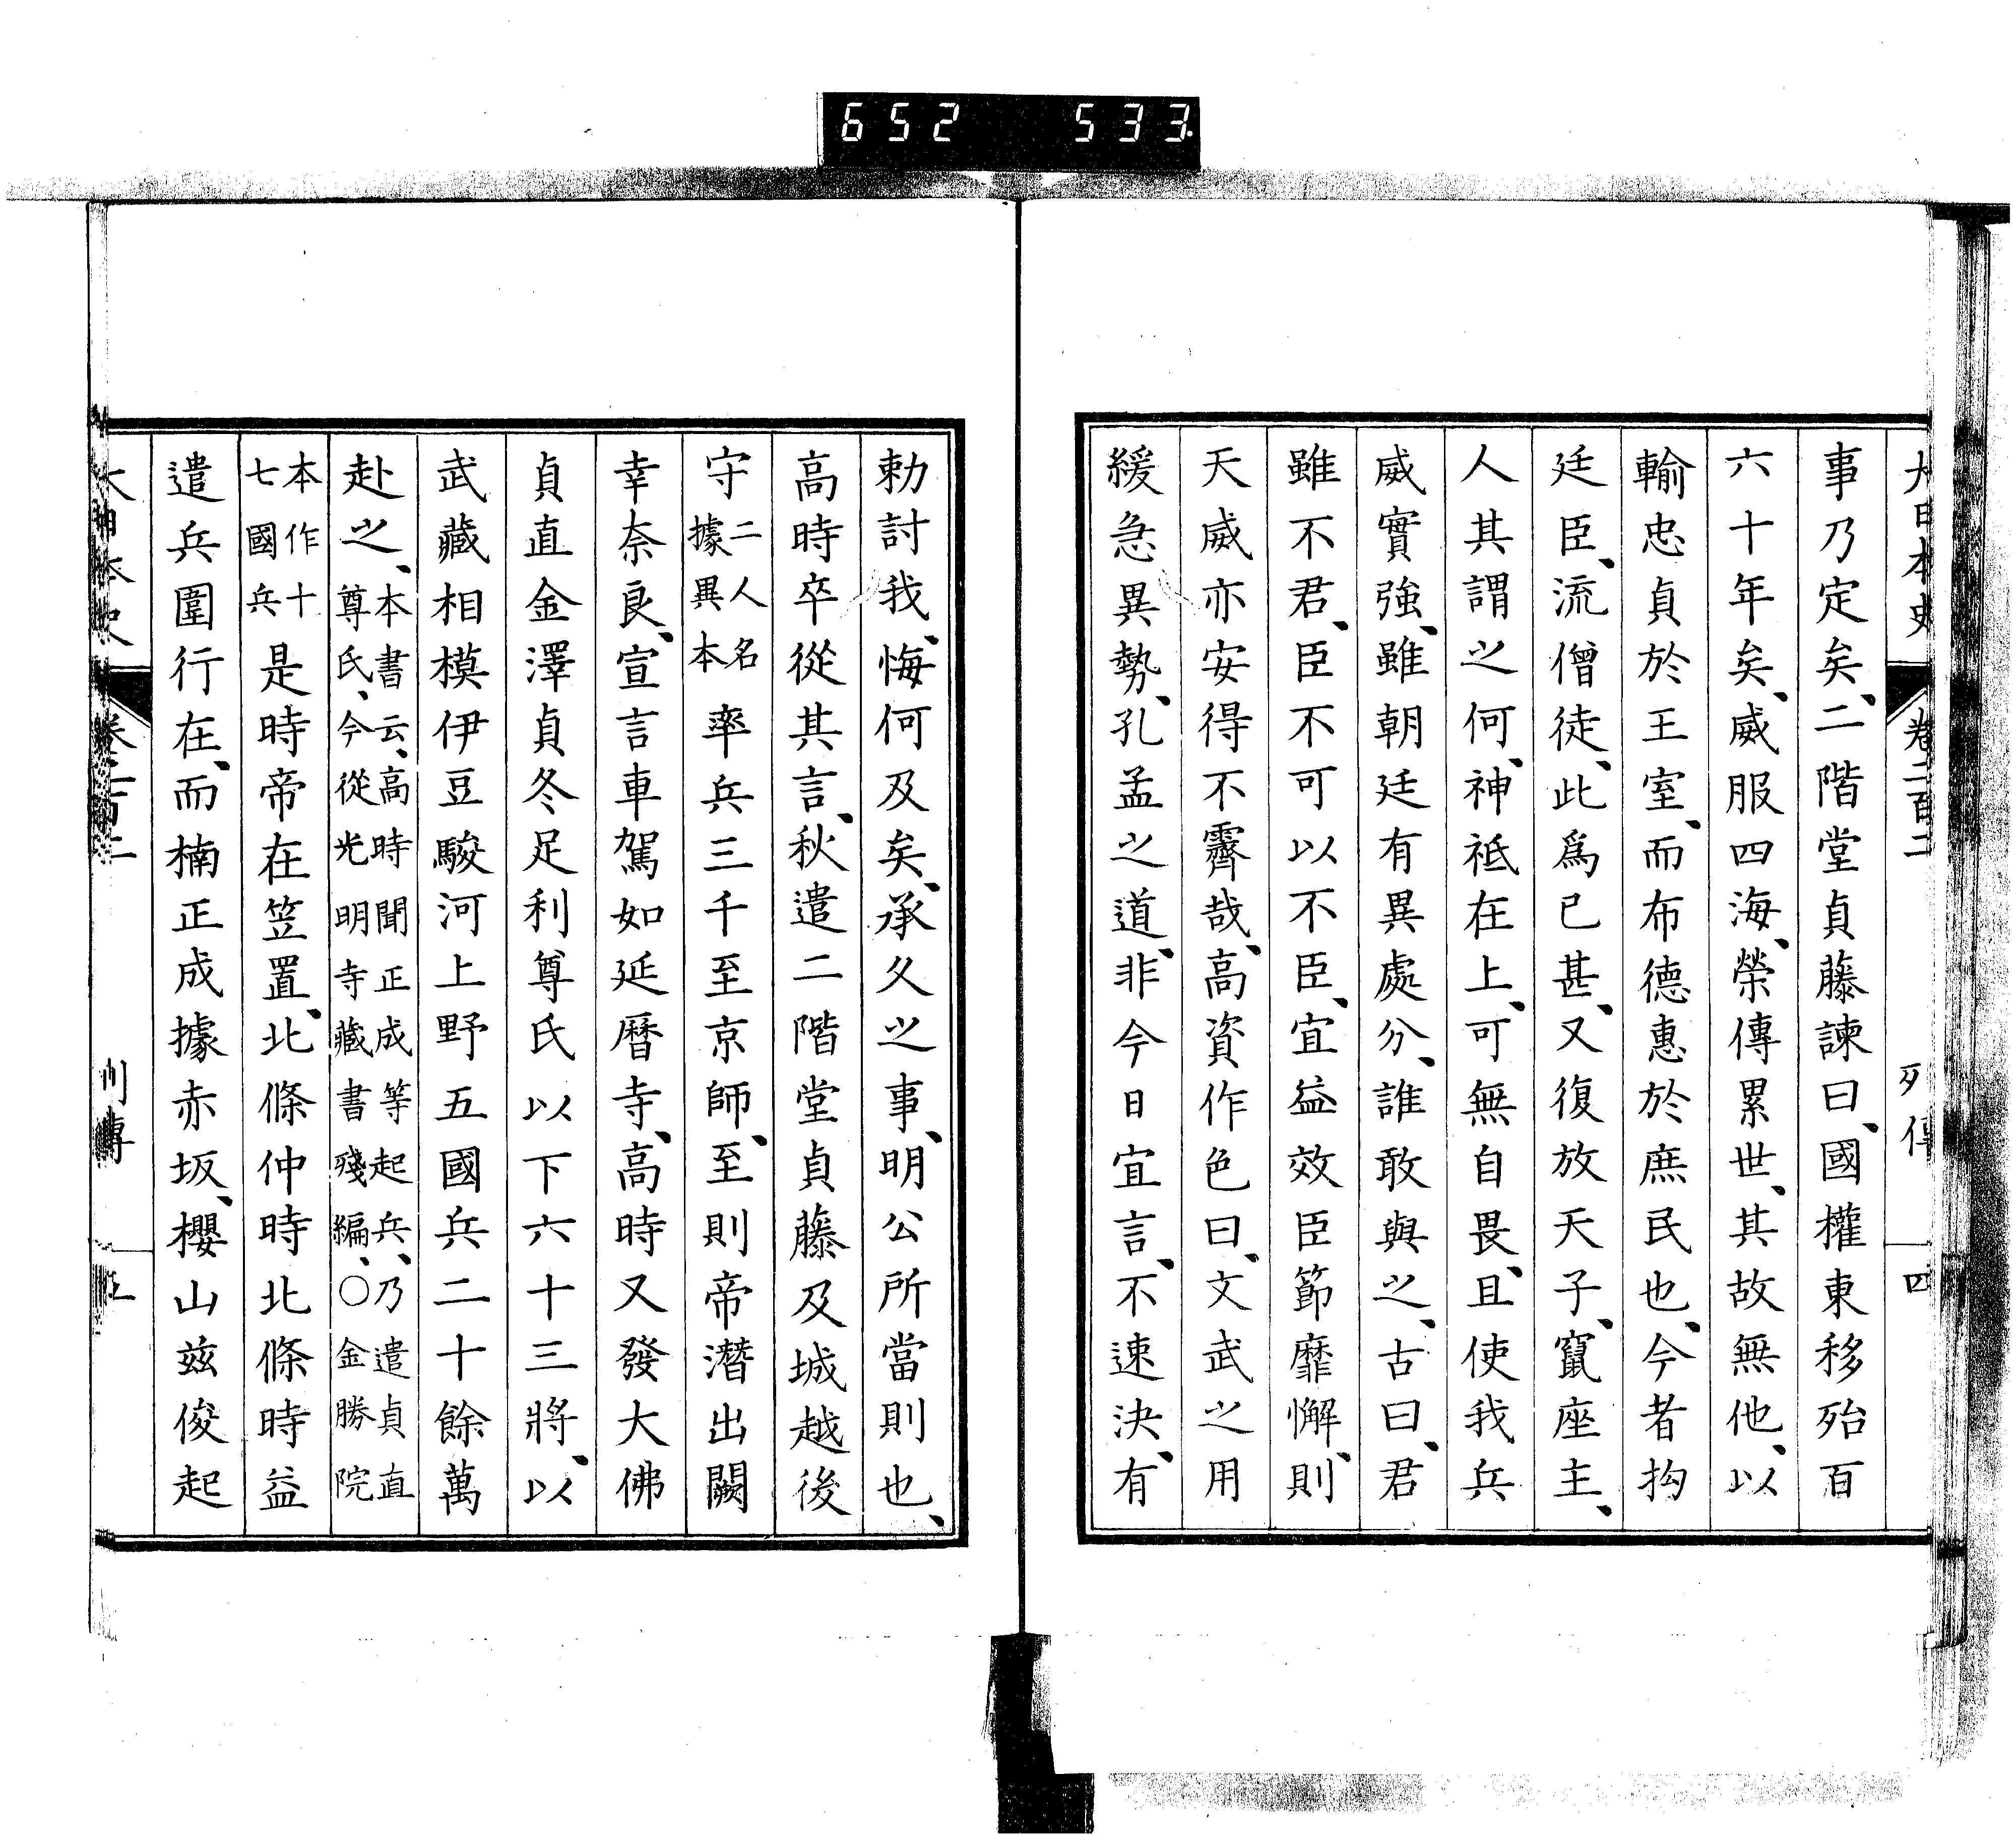 652 533
大日本史 卷二百二 列傳 四
事乃定矣、二階堂貞藤諫曰、國權東移殆百
六十年矣、威服四海、榮傳累世、其故無他、以
輸忠貞於王室、而布德惠於庶民也、今者拘
廷臣、流僧徒、此爲已甚、又復放天子、竄座主、
人其謂之何、神祇在上、可無自畏、且使我兵
威實強、雖朝廷有異處分、誰敢與之、古曰、君
雖不君、臣不可以不臣、宜益效臣節靡懈、則
天威亦安得不霽哉、高資作色曰、文武之用
緩急異勢、孔孟之道、非今日宜言、不速決、有
勅討我、悔何及矣、承久之事、明公所當則也、
高時卒從其言、秋遣二階堂貞藤及城越後
守二人名據異本率兵三千至京師、至則帝潛出闕
幸奈良、宣言車駕如延曆寺、高時又發大佛
貞直金澤貞冬足利尊氏以下六十三將、以
武藏相模伊豆駿河上野五國兵二十餘萬
赴之、本書云、高時聞正成等起兵、乃遣貞直尊氏、今從光明寺藏書殘編、○金勝院
本作十七國兵是時帝在笠置、北條仲時北條時益
遣兵圍行在、而楠正成據赤坂、櫻山茲俊起
大日本史 卷二百二 列傳 五